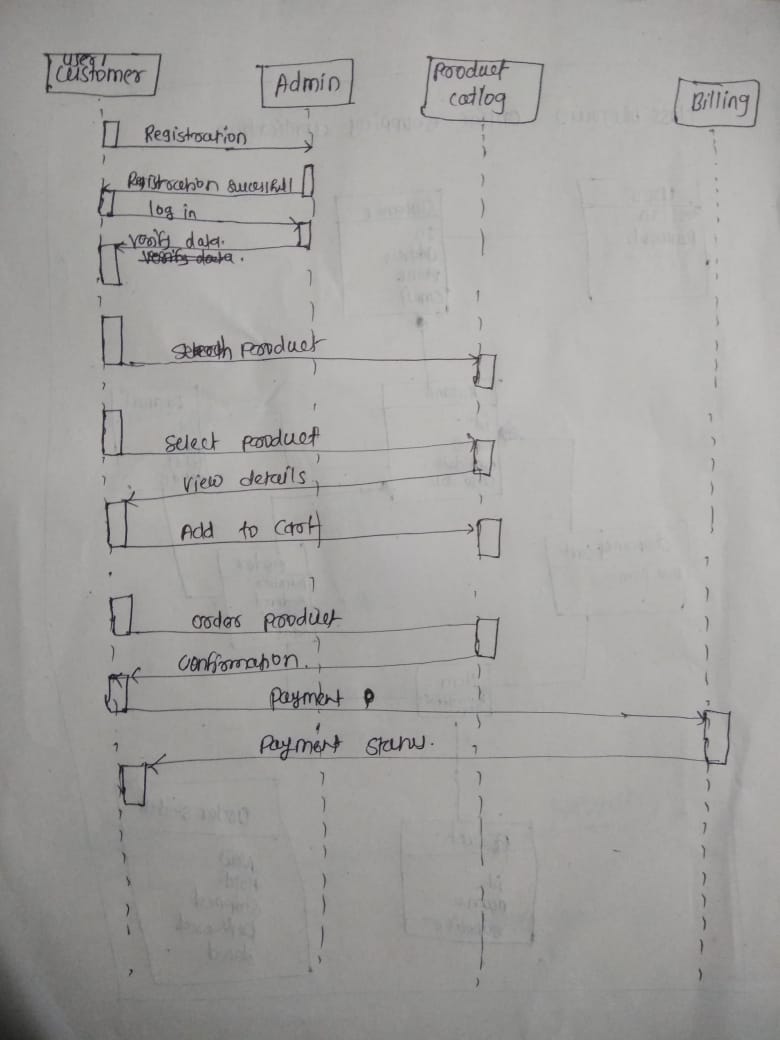 user/
customer
Admin
Product
catlog
Billing
Registration
Registration sucessfull
log in
verify data.
verify data.
Search product
select product
view details
Add to cart
order product
confirmation.
payment
payment status.